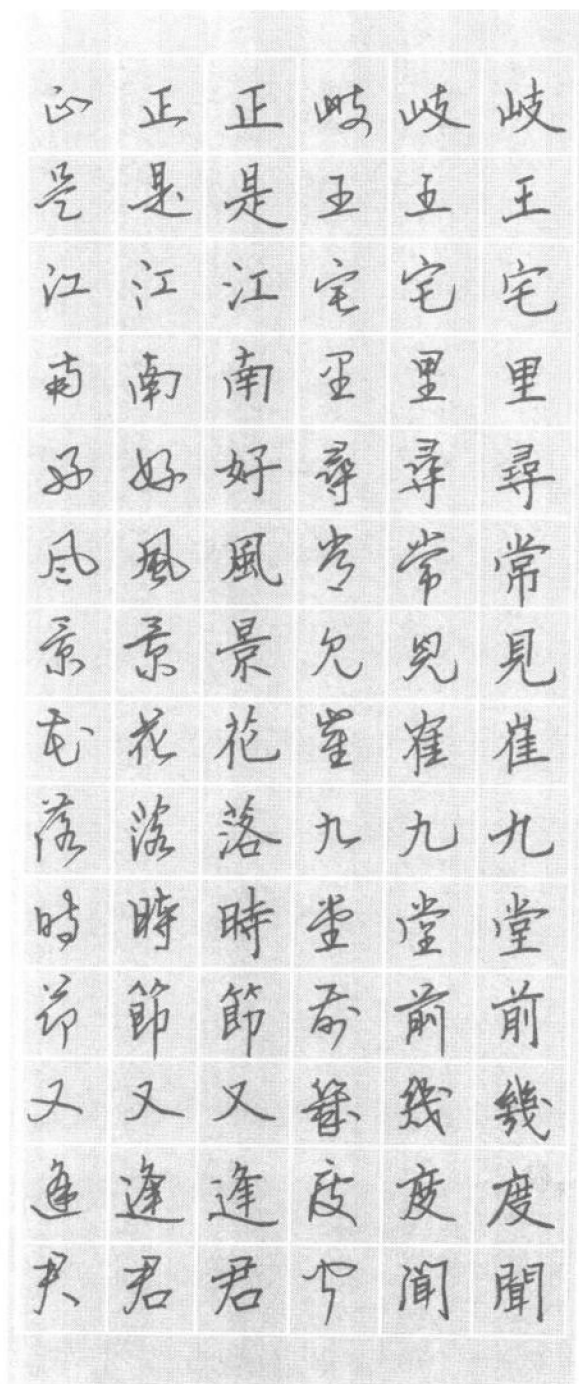 岐王宅里尋常見崔九堂前幾度聞
岐王宅里尋常見崔九堂前幾度聞
岐王宅里尋常見崔九堂前幾度聞
正是江南好風景花落時節又逢君
正是江南好風景花落時節又逢君
正是江南好風景花落時節又逢君